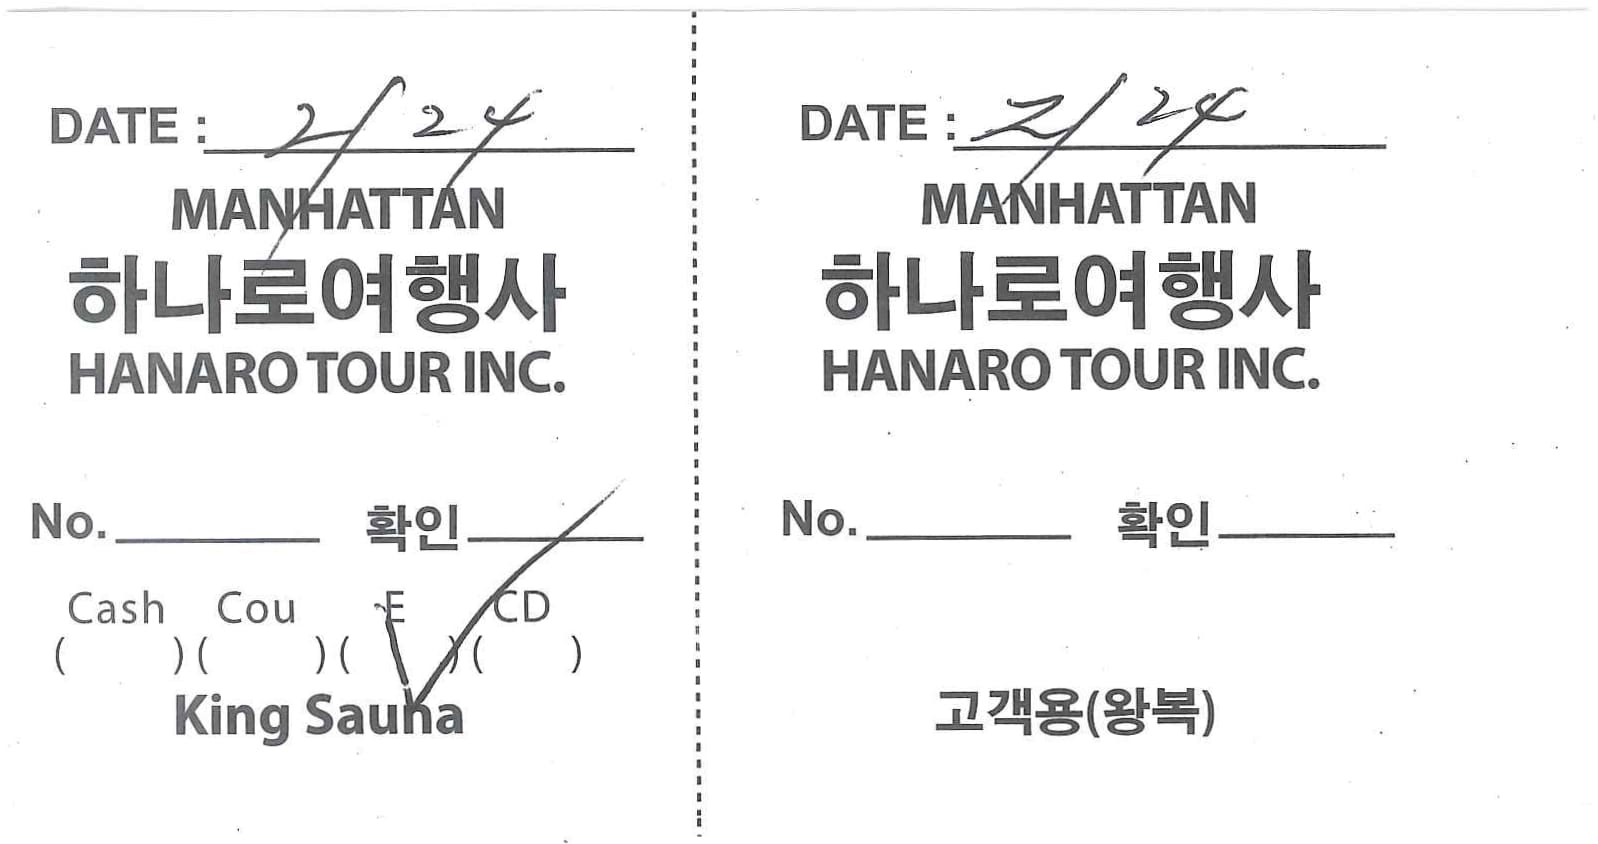 DATE : 2/24
MANHATTAN
하나로여행사
HANARO TOUR INC.
No. 확인
Cash Cou E CD
( )( )( )( )
King Sauna
DATE : 2/24
MANHATTAN
하나로여행사
HANARO TOUR INC.
No. 확인
고객용(왕복)